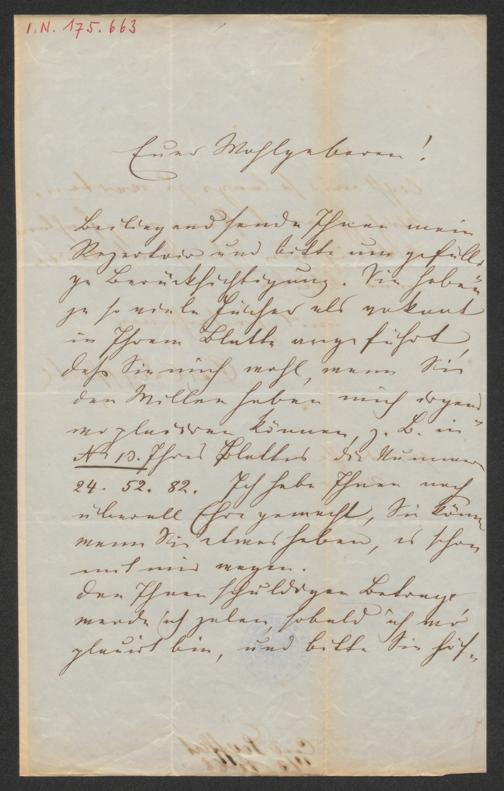 I.N. 175.663
Euer Wohlgeboren!
Beiliegend sende Ihnen mein
Repertoir und bitte um gefälli-
ge Berücksichtigung. Sie haben
ja so viele Fächer als vakant
in Ihrem Blatte angeführt,
daß Sie mich wohl, wenn Sie
den Willen haben mich irgend
wo placiren können, z. B. in
No 13. Ihres Blattes die Nummern
24. 52. 82. Ich habe Ihnen noch
überall Ehre gemacht, Sie können
wenn Sie etwas haben, es schon
mit mir wagen.
Den Ihnen schuldigen Betrag
werde ich zalen, sobald ich wo
placirt bin, und bitte Sie höf-